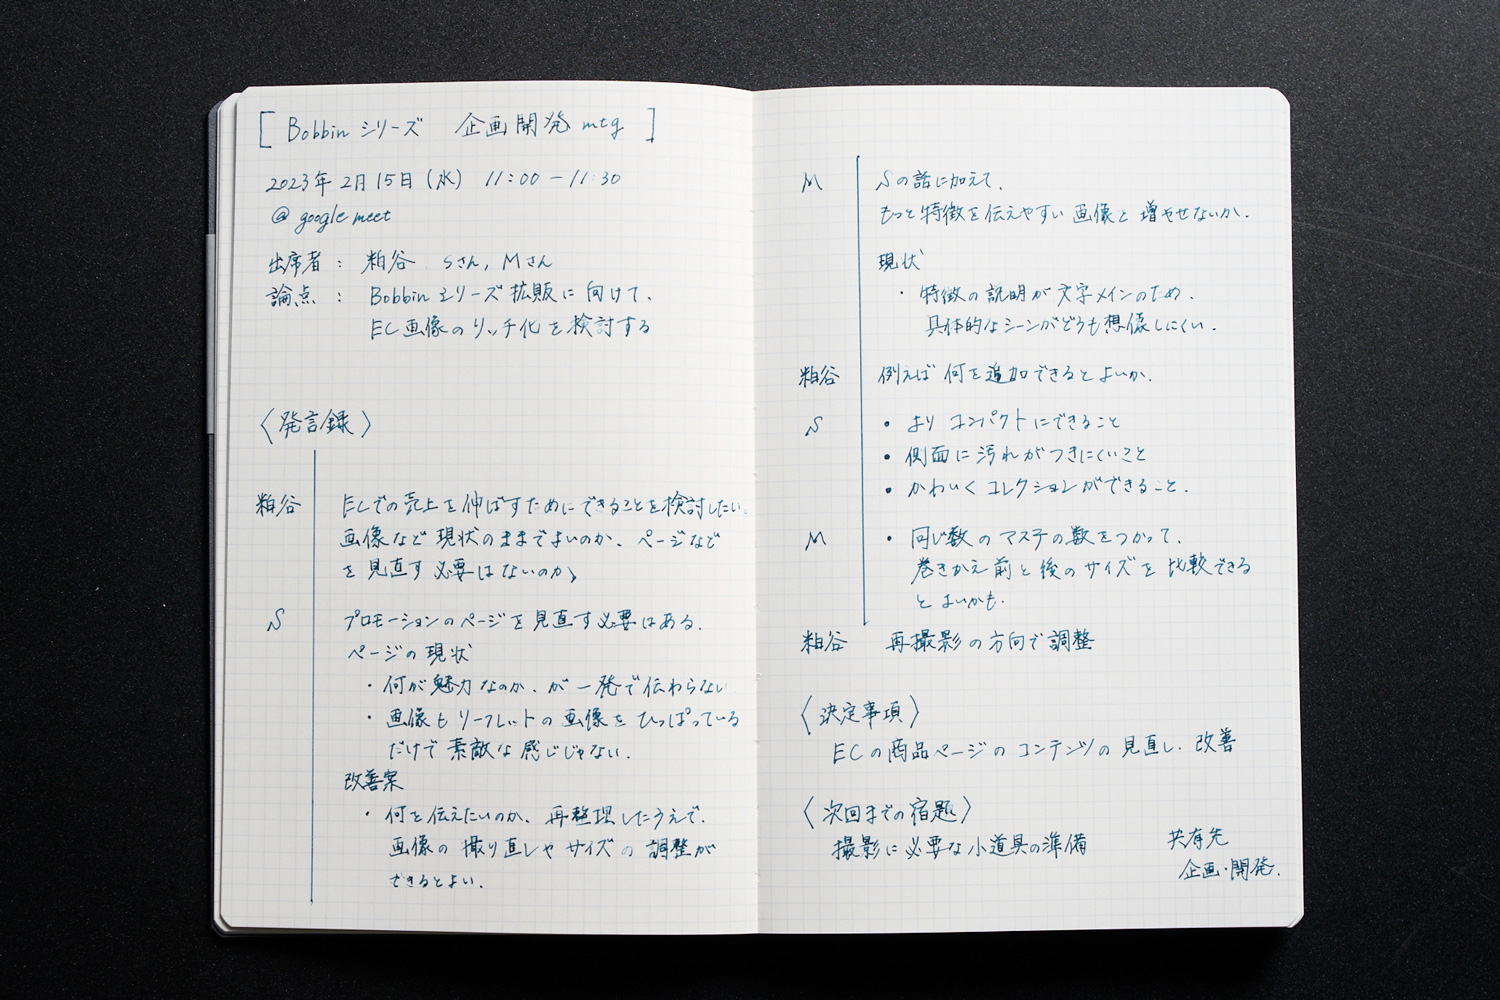 [ Bobbin シリーズ 企画開発 mtg ]
2023年 2月 15日 (水) 11:00 – 11:30
@ google meet
出席者 : 粕谷 Sさん, Mさん
論点 : Bobbin シリーズ 拡販に 向けて、
EC画像の リッチ化 を 検討する
〈 発言録 〉
粕谷 ECでの 売上を 伸ばすために できることを 検討したい。
画像など 現状の ままでよいのか、ページなど
を 見直す 必要は ないのか、
S プロモーションの ページを 見直す 必要はある.
ページの 現状
・何が 魅力なのか、が 一発で 伝わらない
・画像も リーフレットの 画像を ひっぱっている
だけで 素敵な 感じじゃない.
改善案
・何を 伝えたいのか、再整理したうえで、
画像の 撮り直しや サイズの 調整が
できるとよい.
M Sの話に加えて、
もっと 特徴を 伝えやすい 画像を 増やせないか.
現状
・特徴の 説明が 文字メインのため、
具体的な シーンが どうも 想像しにくい.
粕谷 例えば 何を 追加 できると よいか.
S ・よりコンパクトに できること
・側面に 汚れが つきにくいこと
・かわいく コレクションが できること.
M ・同じ数の マステの 数をつかって、
巻きかえ 前と 後の サイズを 比較できる
と よいかも.
粕谷 再撮影の 方向で 調整
〈 決定事項 〉
ECの 商品ページの コンテンツの 見直し・改善
〈 次回までの 宿題 〉
撮影に 必要な 小道具の準備
共有先
企画・開発.